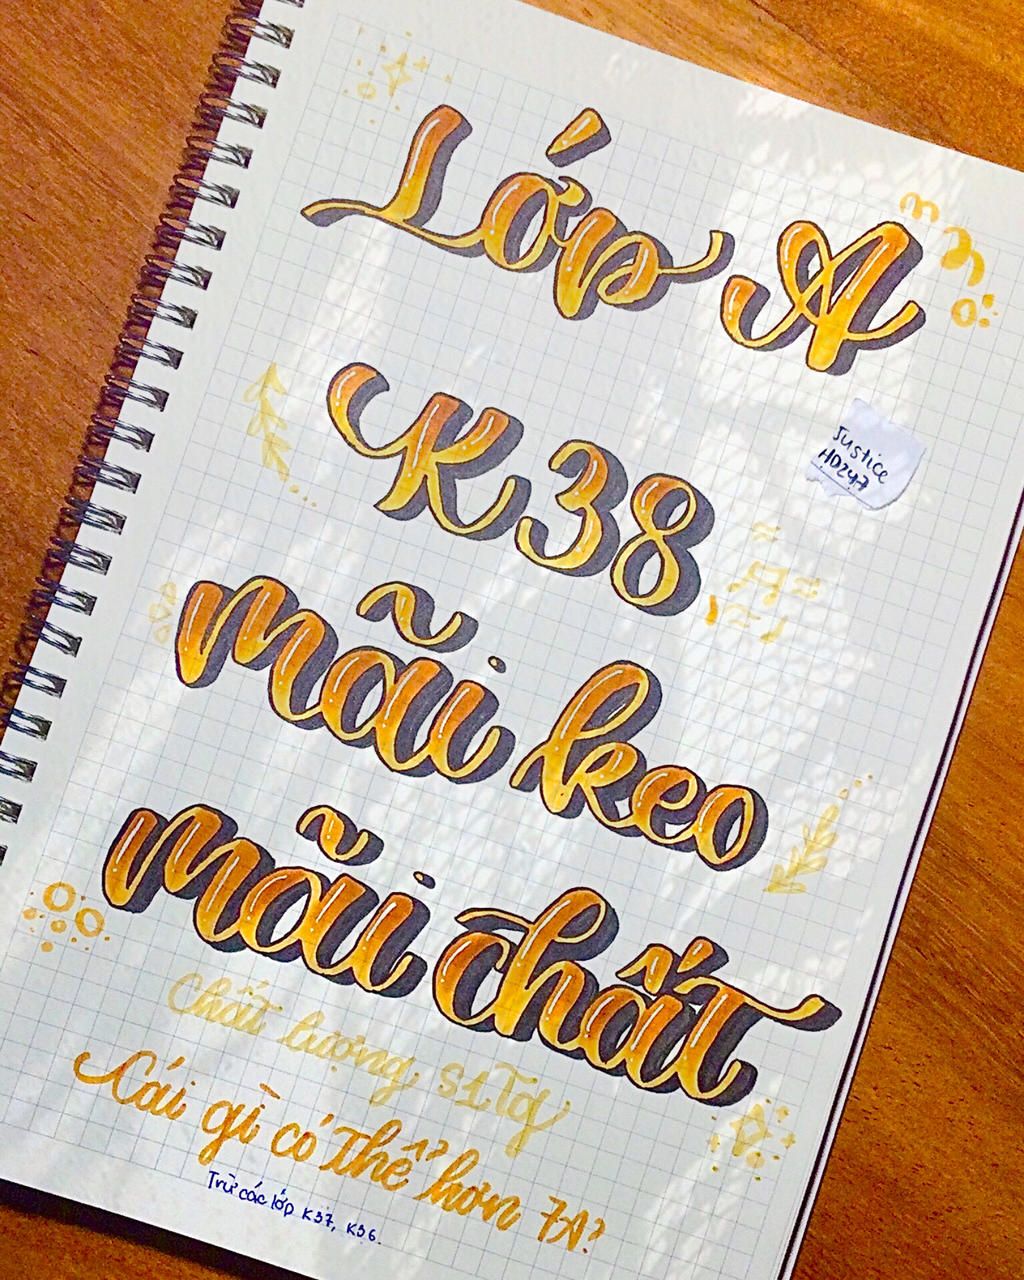 Lớp A
K38
Justice
HD247
mãi keo
mãi chất
Chất lượng s1Tg
Cái gì có thể hơn 7A?
Trừ các lớp K37, K36.